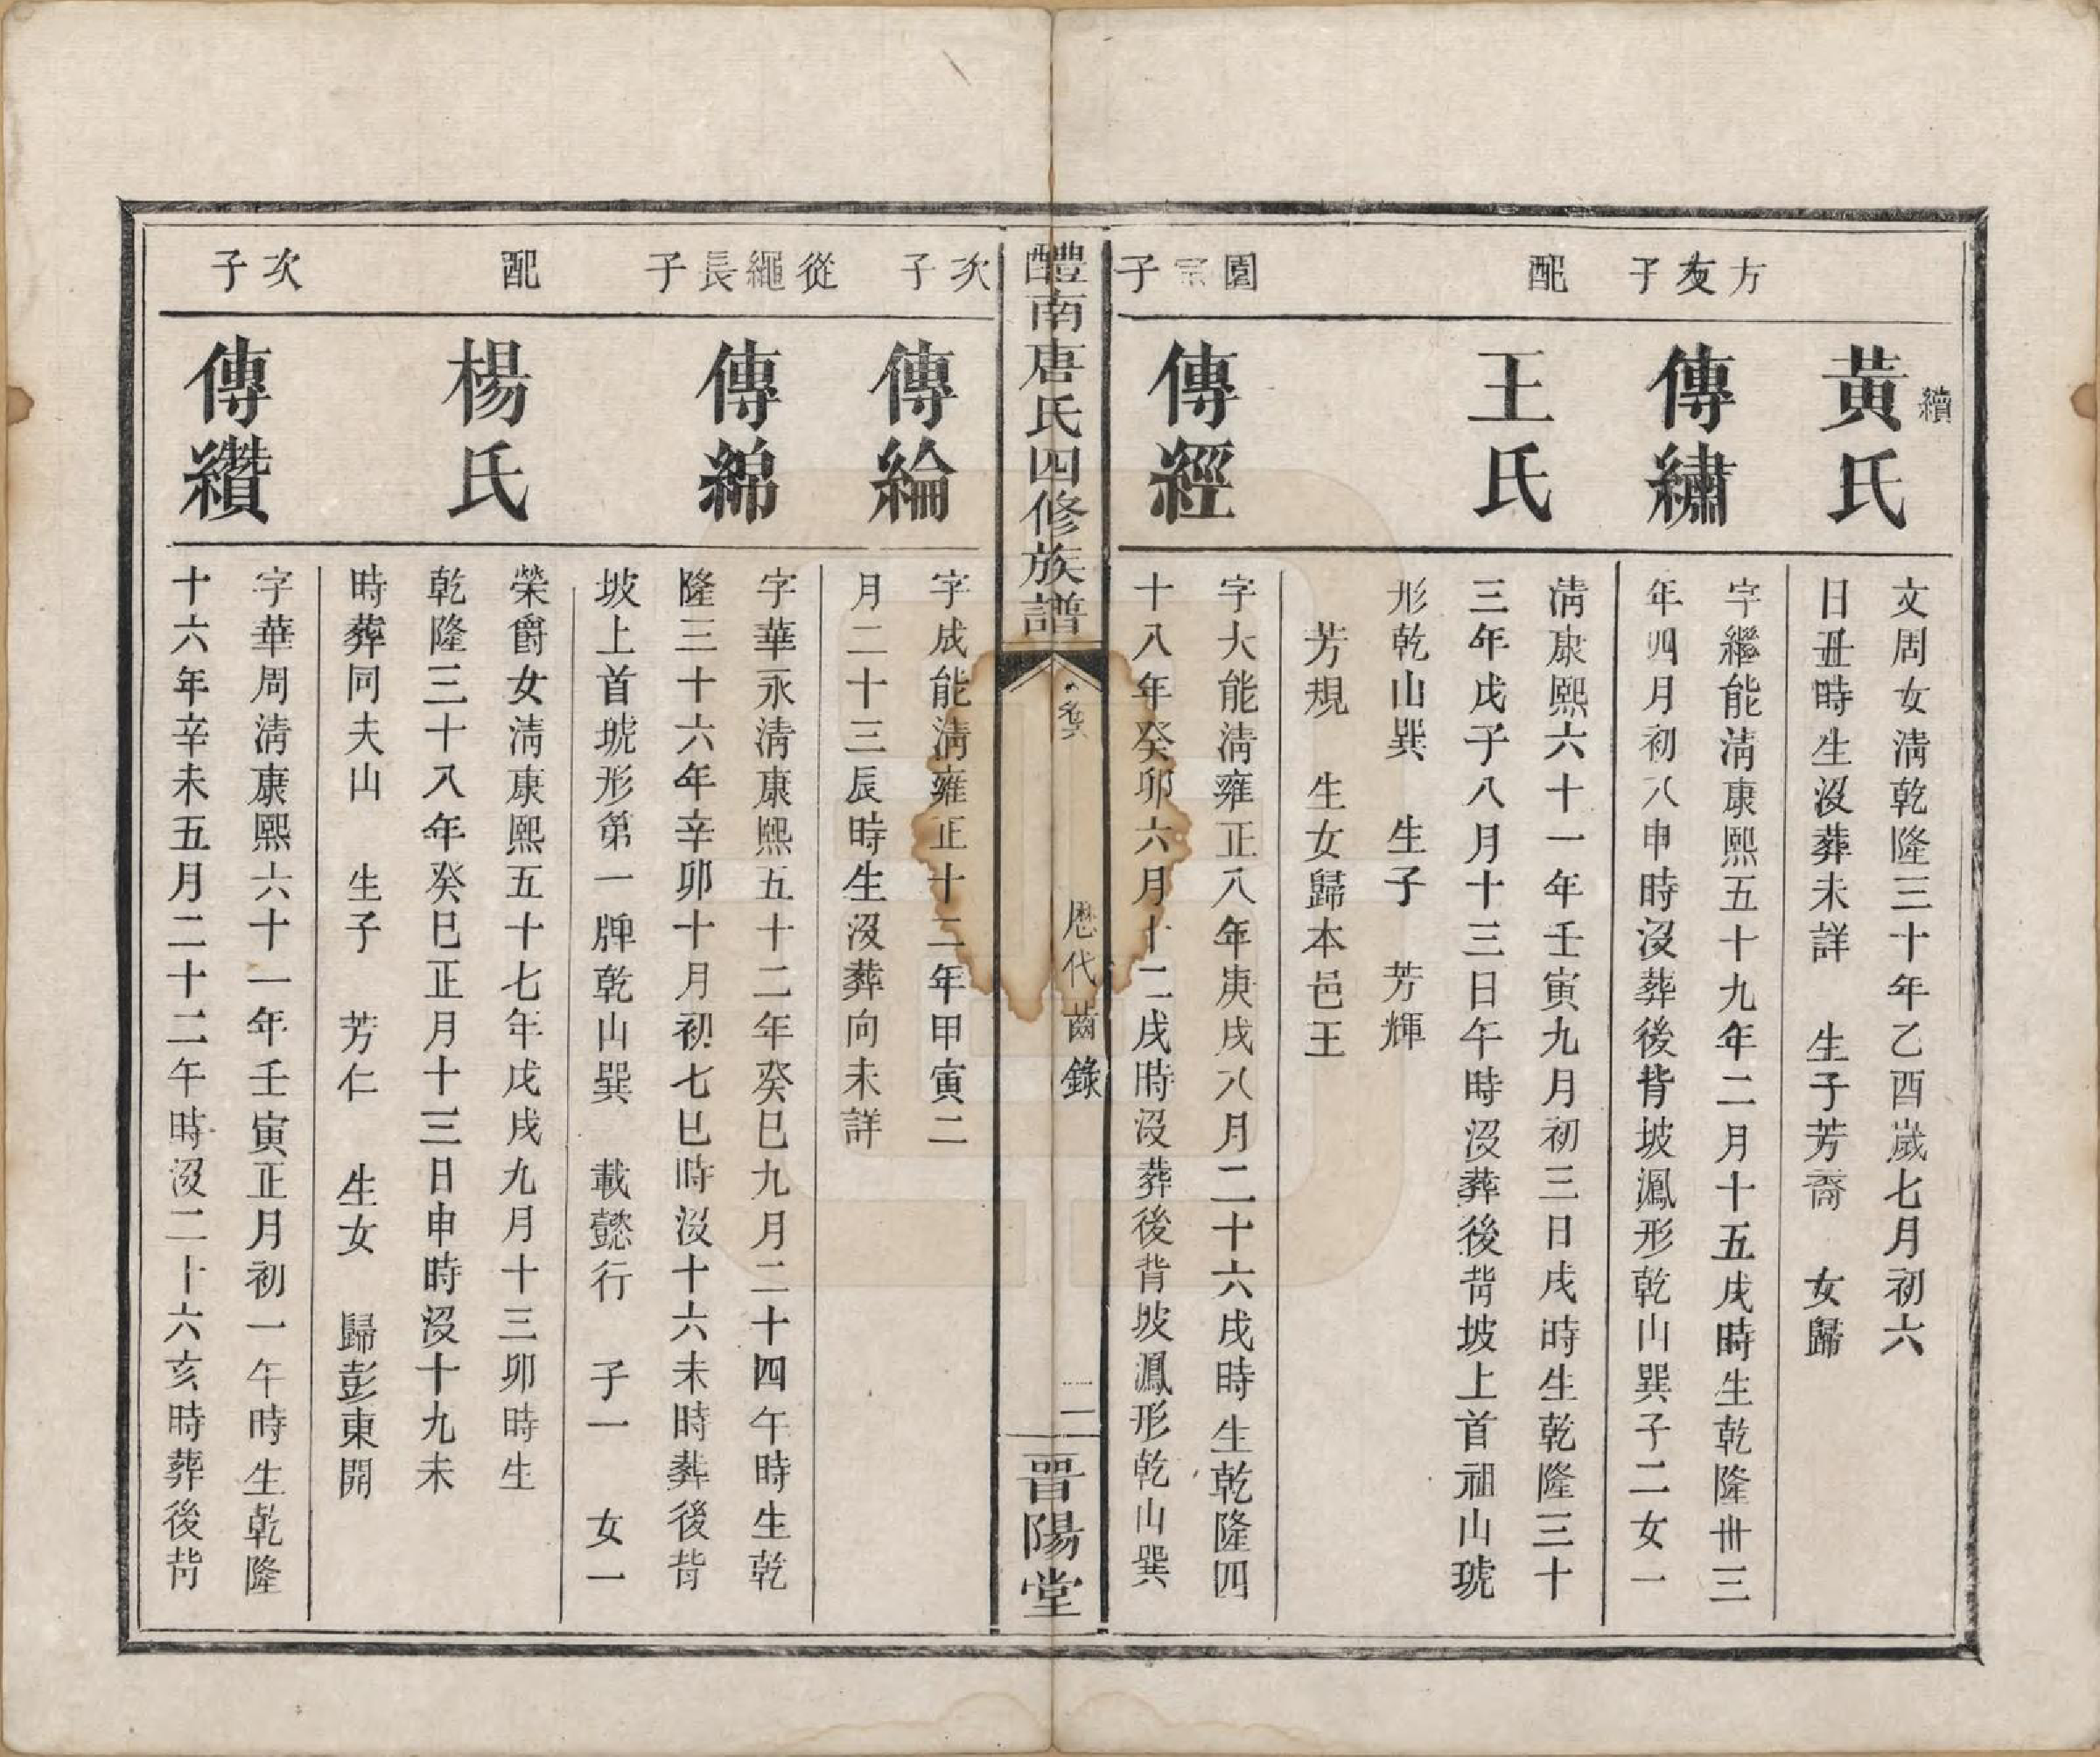 續
黃氏
文周女淸乾隆三十年乙酉歲七月初六
日丑時生沒葬未詳　生子芳喬　女歸
方友子
傳繡
字繼能淸康熙五十九年二月十五戌時生乾隆卅三
年四月初八申時沒葬後背坡鳳形乾山巽子二女一
配
王氏
淸康熙六十一年壬寅九月初三日戌時生乾隆三十
三年戊子八月十三日午時沒葬後背坡上首祖山琥
形乾山巽　生子　芳輝
芳規　生女歸本邑王
園宗子
傳經
字大能淸雍正八年庚戌八月二十六戌時生乾隆四
十八年癸卯六月十二戌時沒葬後背坡鳳形乾山巽
醴南唐氏四修族譜
歷代齒錄
二
晉陽堂
次子
傳綸
字成能淸雍正十二年甲寅二
月二十三辰時生沒葬向未詳
從繩長子
傳綿
字華永淸康熙五十二年癸巳九月二十四午時生乾
隆三十六年辛卯十月初七巳時沒十六未時葬後背
坡上首琥形第一牌乾山巽　載懿行　子一　女一
配
楊氏
榮爵女淸康熙五十七年戊戌九月十三卯時生
乾隆三十八年癸巳正月十三日申時沒十九未
時葬同夫山　生子　芳仁　生女　歸彭東開
次子
傳纘
字華周淸康熙六十一年壬寅正月初一午時生乾隆
十六年辛未五月二十二午時沒二十六亥時葬後背